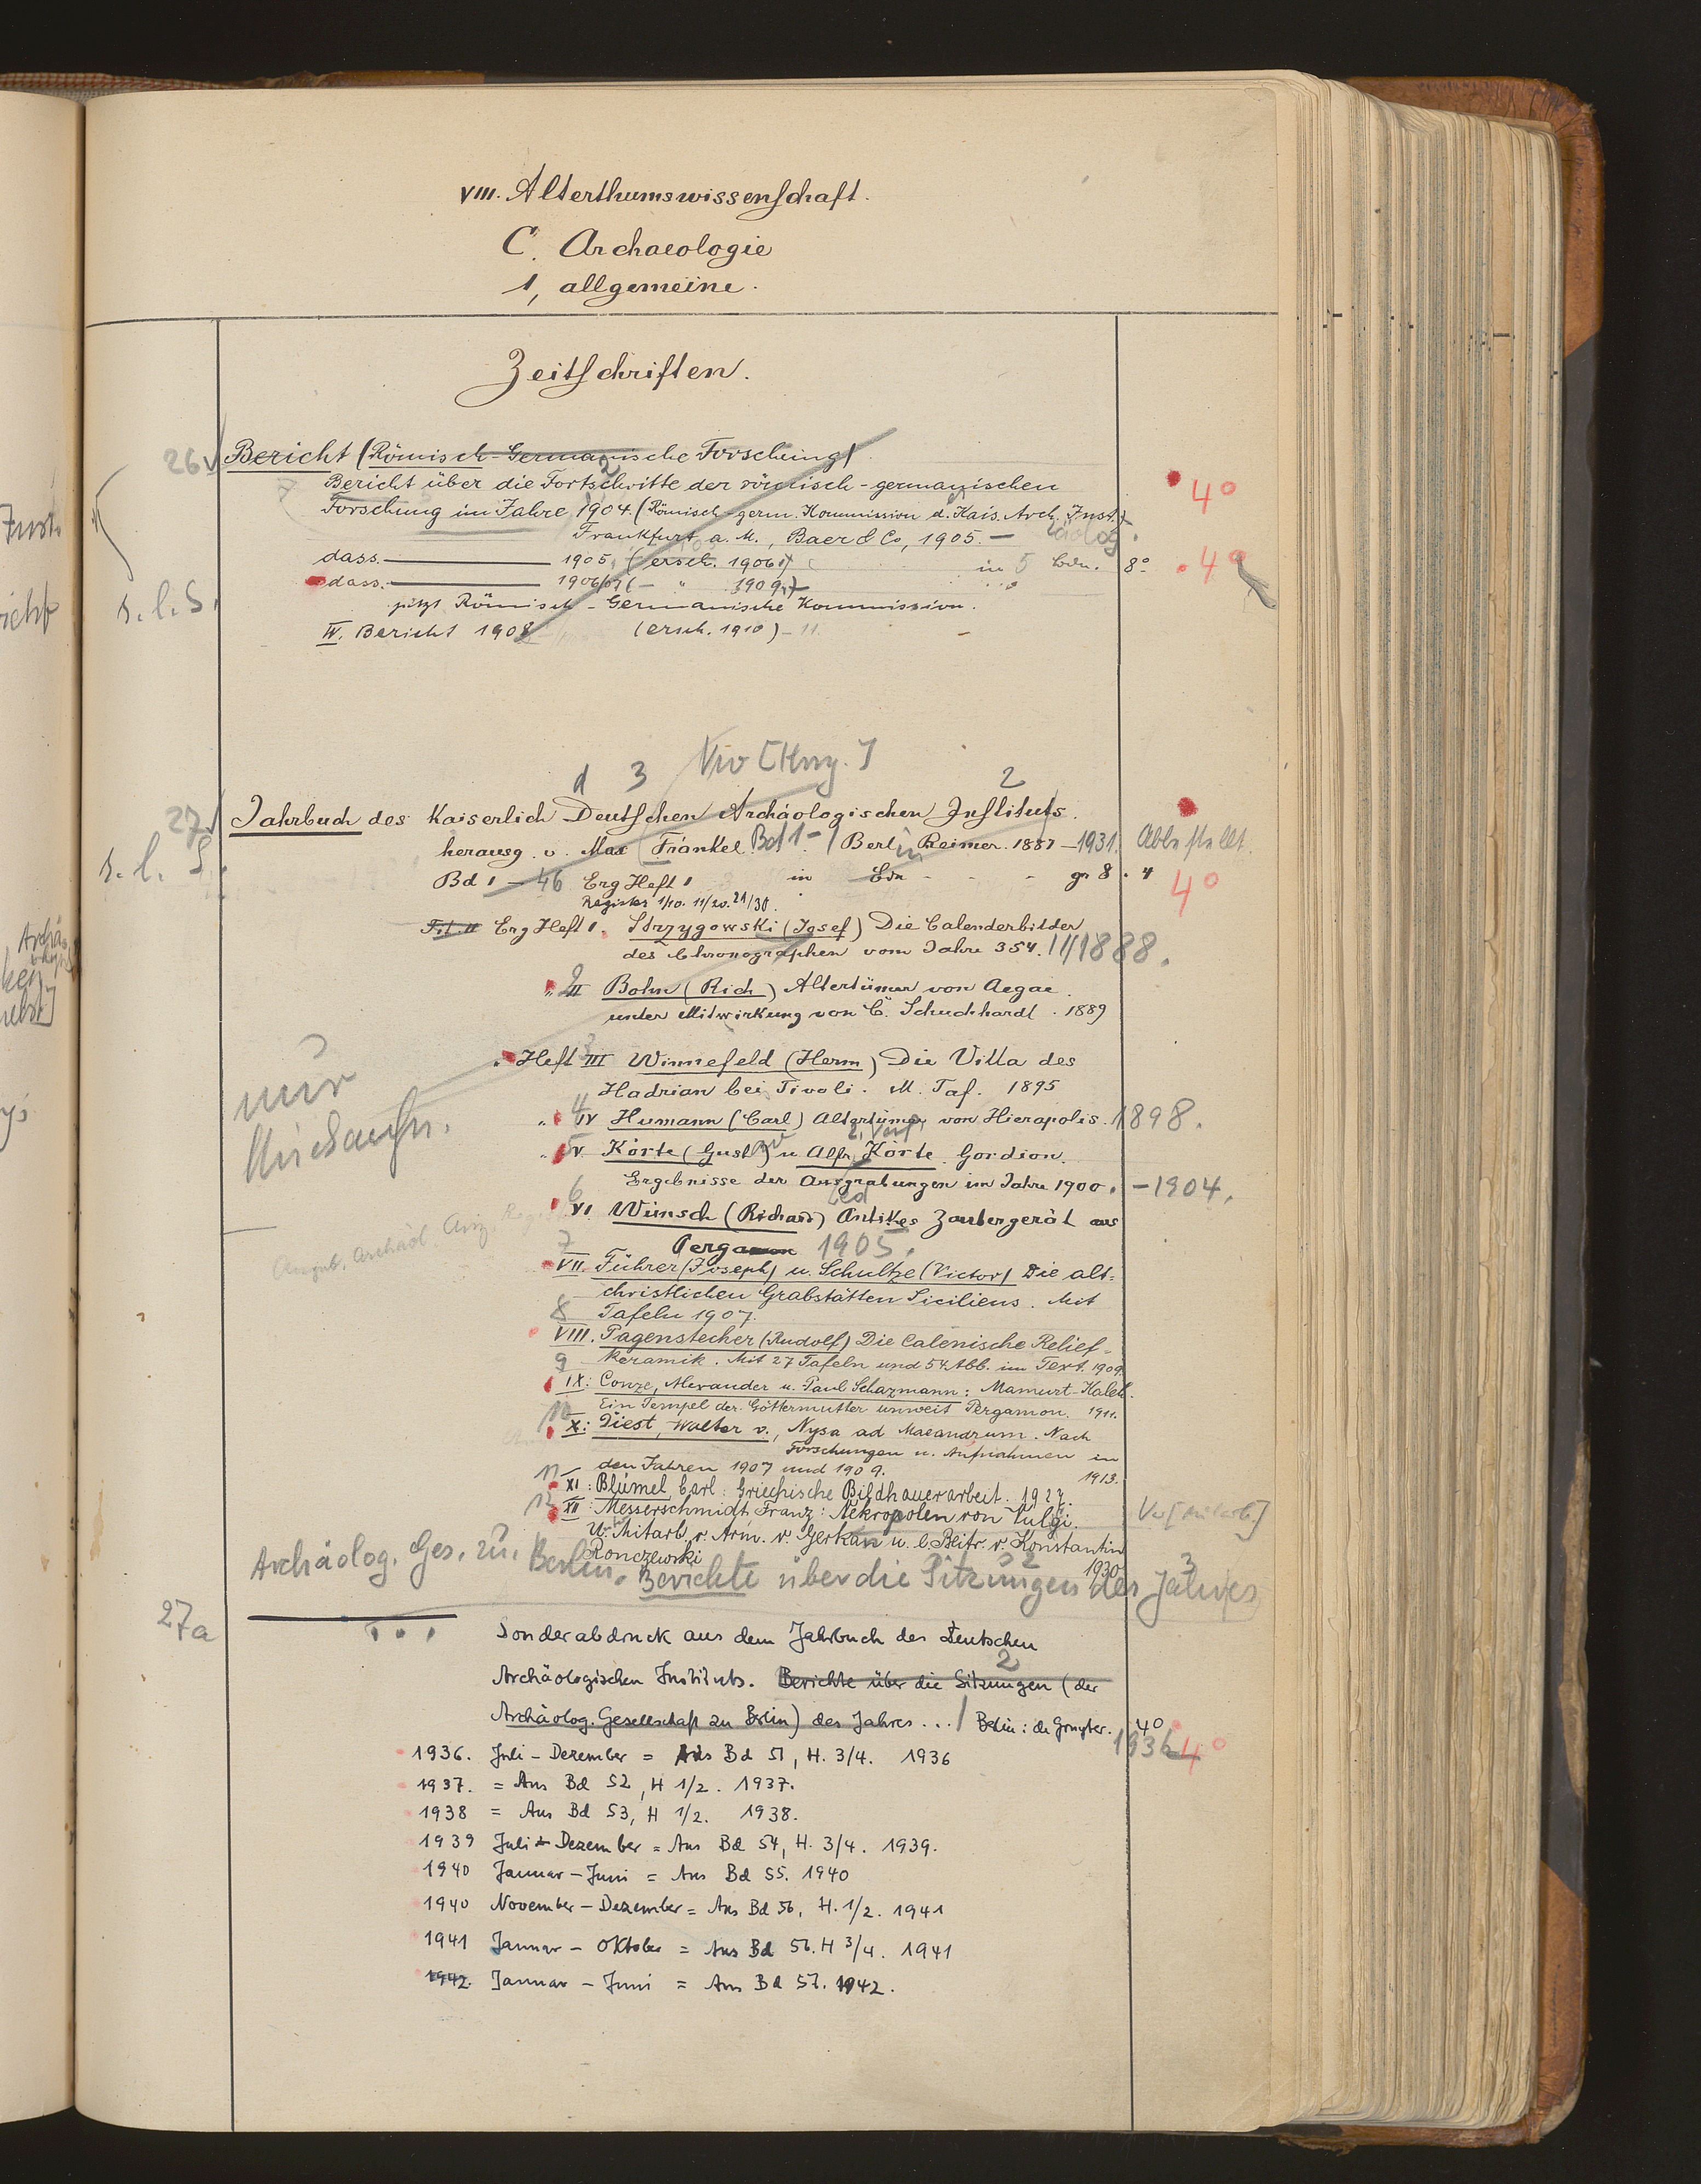 VIII. Alterthumswissenschaft.
C. Archaeologie
1, allgemeine.
Zeitschriften.
26 Bericht (Römisch-Germanische Forschung)
Bericht über die Fortschritte der römisch-germanischen
Forschung im Jahre 1904. (Römisch-germ. Kommission d. Kais. Arch. Inst.)
4°
Frankfurt a. M., Baer & Co, 1905. —
dass. 1905 (ersch. 1906) in 5 Bdn. 8° 4°
dass. 1906/07 ( — " 1909)
s. l. S.
jetzt Römisch-Germanische Kommission.
IV. Bericht 1908 (ersch. 1910) - 11.
d 3 2
27 Jahrbuch des Kaiserlich Deutschen Archäologischen Instituts.
herausg. v. Max Fränkel. Bd 1- / Berlin Reimer. 1887 - 1931.
s. l. S.
Bd 1 — 46 Erg Heft 1 in Bdn - - - gr 8. 4
4°
Register 1/10. 11/20. 21/30.
Erg Heft 1. Strzygowski (Josef) Die Calenderbilder
des Chronographen vom Jahre 354. 1888.
" II Bohn (Rich) Altertümer von Aegae.
unter Mitwirkung von C. Schuchhardt. 1889
Heft III Winnefeld (Herm) Die Villa des
Hadrian bei Tivoli. M. Taf. 1895
nur
" IV Humann (Carl) Altertümer von Hierapolis. 1898.
" V. Körte (Gust) u Alfr. Körte. Gordion.
Ergebnisse der Ausgrabungen im Jahre 1900. - 1904.
VI. Wünsch (Richard) Antikes Zaubergerät aus
Pergamon 1905.
VII. Führer (Joseph) u. Schultze (Victor) Die alt=
christlichen Grabstätten Siciliens. Mit
Tafeln 1907.
VIII. Pagenstecher (Rudolf) Die Calenische Relief=
keramik. Mit 27 Tafeln und 54 Abb. im Text. 1909.
IX: Conze, Alexander u. Paul Schazmann: Mamurt-Kaleh.
Ein Tempel der Göttermutter unweit Pergamon. 1911.
X: Diest, Walter v., Nysa ad Maeandrum. Nach
Forschungen u. Aufnahmen in
den Jahren 1907 und 1909. 1913.
XI: Blümel, Carl: Griechische Bildhauerarbeit. 1927.
XII: Messerschmidt, Franz: Nekropolen von Vulci.
U. Mitarb. v. Arm. v. Gerkan u. e. Beitr. v. Konstantin
Ronczewski 1930
Archäolog. Ges. zu Berlin. Berichte über die Sitzungen des Jahres
27a
... Sonderabdruck aus dem Jahrbuch des Deutschen
Archäologischen Instituts. Berichte über die Sitzungen (der
Archäolog. Gesellschaft zu Berlin) des Jahres ... / Berlin: de Gruyter. 4°
1936 4°
1936. Juli - Dezember = Aus Bd 51, H. 3/4. 1936
1937. = Aus Bd 52, H 1/2. 1937.
1938 = Aus Bd 53, H 1/2. 1938.
1939 Juli - Dezember = Aus Bd 54, H. 3/4. 1939.
1940 Januar - Juni = Aus Bd 55. 1940
1940 November - Dezember = Aus Bd 56, H. 1/2. 1941
1941 Januar - Oktober = Aus Bd 56. H 3/4. 1941
1942. Januar - Juni = Aus Bd 57. 1942.